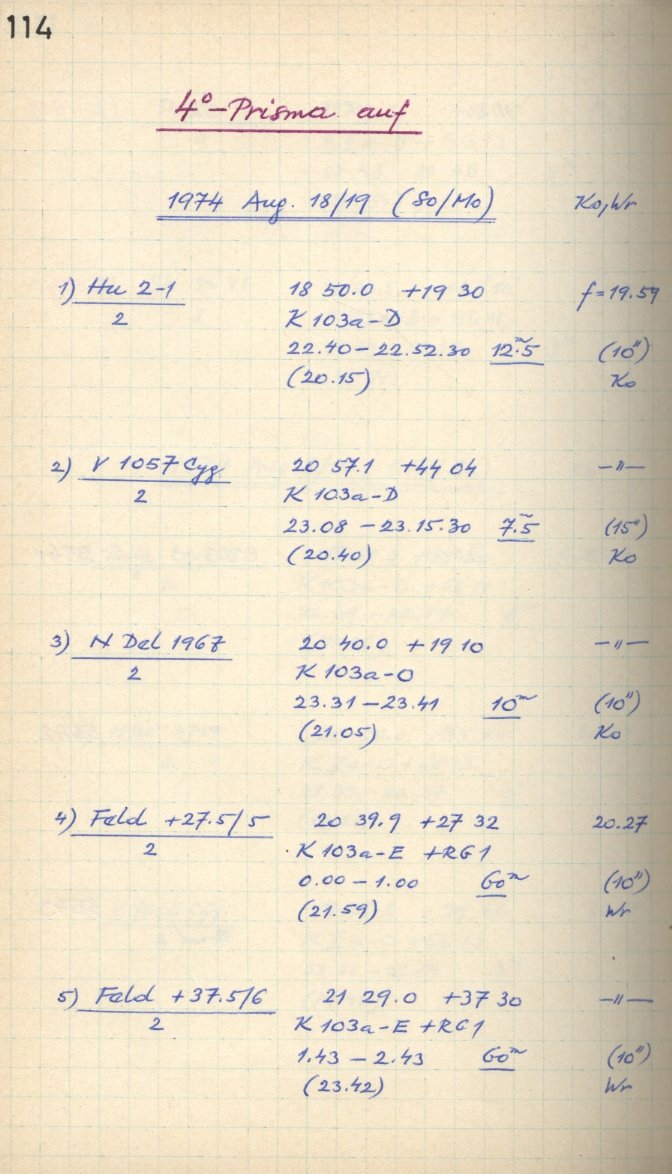 114
4°-Prisma auf
1974 Aug. 18/19 (So/Mo) Ko, Wr
1) Hu 2-1 18 50.0 +19 30 f=19.59
2 K 103a-D
22.40–22.52.30 12.ᵐ5 (10")
(20.15) Ko
2) V 1057 Cyg 20 57.1 +44 04 —"—
2 K 103a-D
23.08–23.15.30 7.ᵐ5 (15")
(20.40) Ko
3) N Del 1967 20 40.0 +19 10 —"—
2 K 103a-O
23.31–23.41 10ᵐ (10")
(21.05) Ko
4) Feld +27.5/5 20 39.9 +27 32 20.27
2 K 103a-E +RG1
0.00–1.00 60ᵐ (10")
(21.59) Wr
5) Feld +37.5/6 21 29.0 +37 30 —"—
2 K 103a-E +RG1
1.43–2.43 60ᵐ (10")
(23.42) Wr